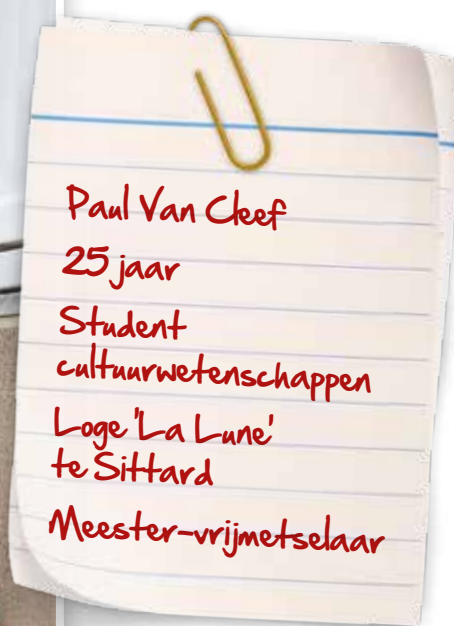 Paul Van Cleef
25 jaar
Student
cultuurwetenschappen
Loge 'La Lune'
te Sittard
Meester-vrijmetselaar